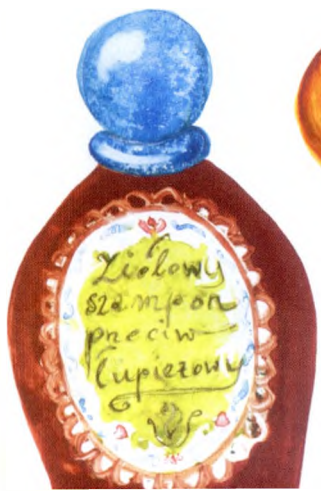 Ziołowy
szampon
przeciw
łupieżowy